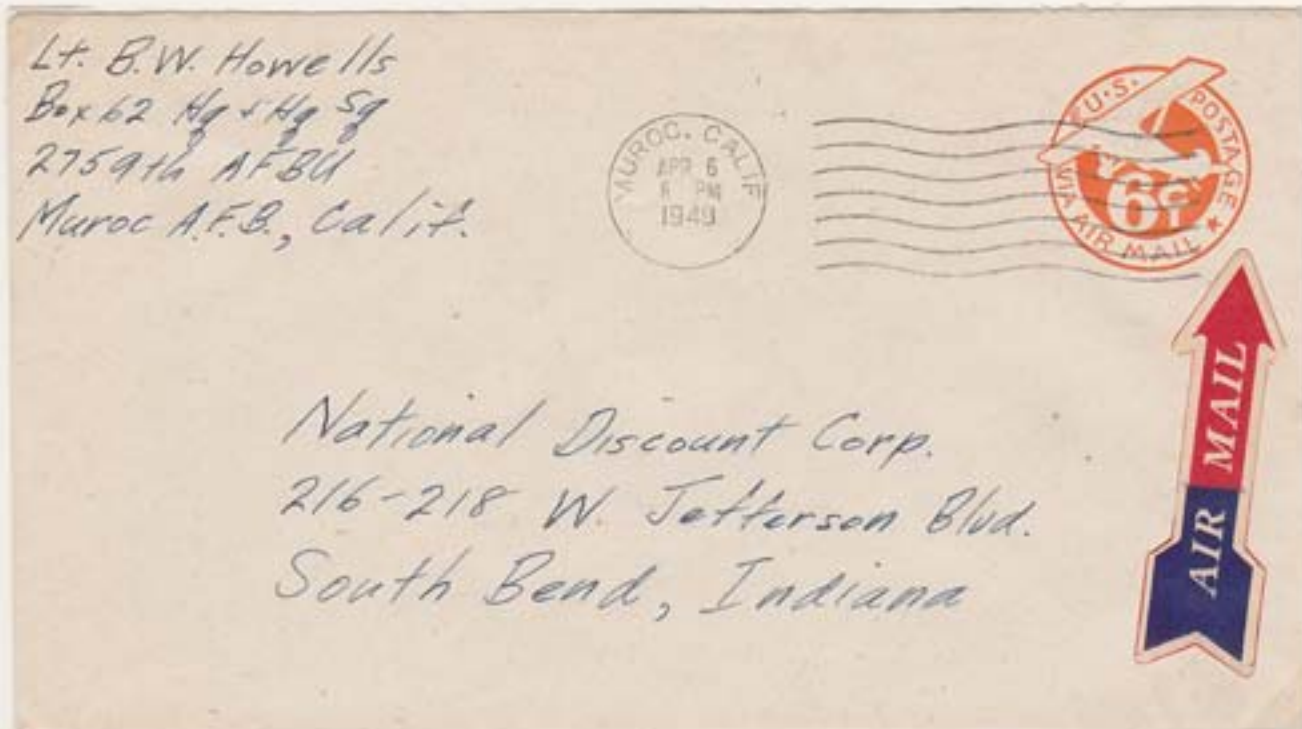 Lt. B.W. Howells
Box 62 Hq + Hq Sq
2759th AFBU
Muroc A.F.B., Calif.
MUROC, CALIF
APR 6
PM
1949
U.S. POSTAGE
6¢
VIA AIR MAIL
AIR MAIL
National Discount Corp.
216-218 W. Jefferson Blvd.
South Bend, Indiana